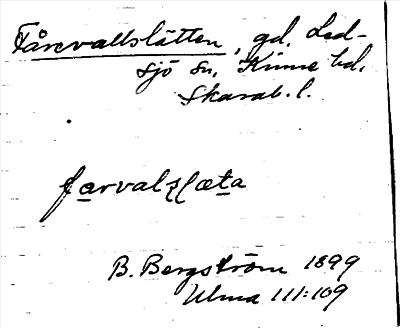 Fårevallslätten, gd. Led-
sjö sn, Kinne hd.
Skarab. l.
farvalslæta
B. Bergström 1899
Ulma 111:109